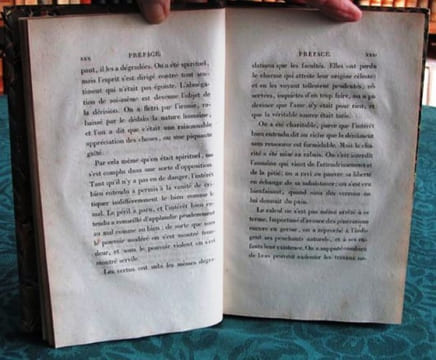 xxx PRÉFACE.
pant, il les a dégradées. On a été spirituel,
mais l'esprit s'est dirigé contre tout sen-
timent qui n'était pas égoïste. L'abnéga-
tion de soi-même est devenue l'objet de
la dérision. On a flétri par l'ironie, ra-
baissé par le dédain la nature humaine,
et l'on a dit que c'était une raisonnable
appréciation des choses, ou une piquante
gaîté.
Par cela même qu'on était spirituel, on
s'est complu dans une sorte d'opposition.
Tant qu'il n'y a pas eu de danger, l'intérêt
bien entendu a permis à la vanité de cri-
tiquer indifféremment le bien comme le
mal. Le péril à paru, et l'intérêt bien en-
tendu a conseillé d'applaudir prudemment
au mal comme au bien : de sorte que sous
le pouvoir modéré on s'est montré fron-
deur, et sous le pouvoir violent on s'est
montré servile.
Les vertus ont subi les mêmes dégra-
PRÉFACE.
dations que les facultés. Elles ont perdu
le charme qui atteste leur origine céleste;
et en les voyant tellement prudentes, ré-
servées, inquiètes d'en trop faire, on a pu
deviner que l'ame n'y était pour rien, et
que la véritable source était tarie.
On a été charitable, parce que l'intérêt
bien entendu dit au riche que le dénûment
sans ressource est formidable. Mais la cha-
rité a été mise au rabais. On s'est interdit
l'aumône qui vient de l'attendrissement et
de la pitié; on a ravi au pauvre sa liberté
en échange de sa subsistance; on s'est cru
bienfaisant, quand sous des verrous on
lui donnait du pain.
Le calcul ne s'est pas même arrêté à ce
terme. Important d'avance des générations
encore en germe, on a reproché à l'indi-
gent ses penchants naturels, et à ses en-
fants leur existence. On a supputé combien
de bras peuvent